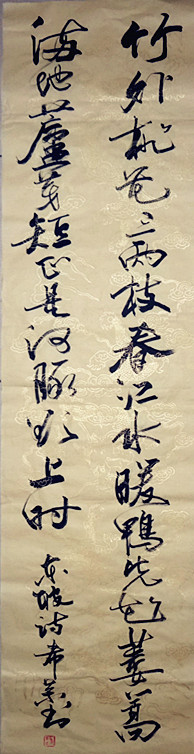 竹外桃花三两枝春江水暖鸭先知蒌蒿
满地芦芽短正是河豚欲上时
东坡诗